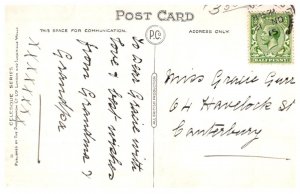 POST CARD
THIS SPACE FOR COMMUNICATION.
ADDRESS ONLY
To Dear Gracie with
love & best wishes
from Grandma &
Grandpa
XXXXXXX
Miss Gracie Gurr
64 Havelock St
Canterbury
HALFPENNY
CELESQUE SERIES
PUBLISHED BY THE PHOTOCHROM CO. LTD. LONDON AND TUNBRIDGE WELLS